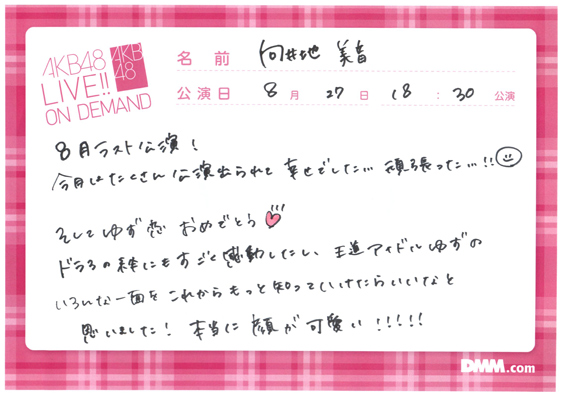 AKB48
LIVE!!
ON DEMAND
AKB
48
名前 向井地 美音
公演日 8月27日 18:30 公演
8月ラスト公演!
今月はたくさん公演出られて幸せでした… 頑張った…!!
そしてゆず恋 おめでとう
ドラ3の絆にもすごく感動したし、王道アイドルゆずの
いろんな一面をこれからもっと知っていけたらいいなと
思いました! 本当に顔が可愛い!!!!!
DMM.com